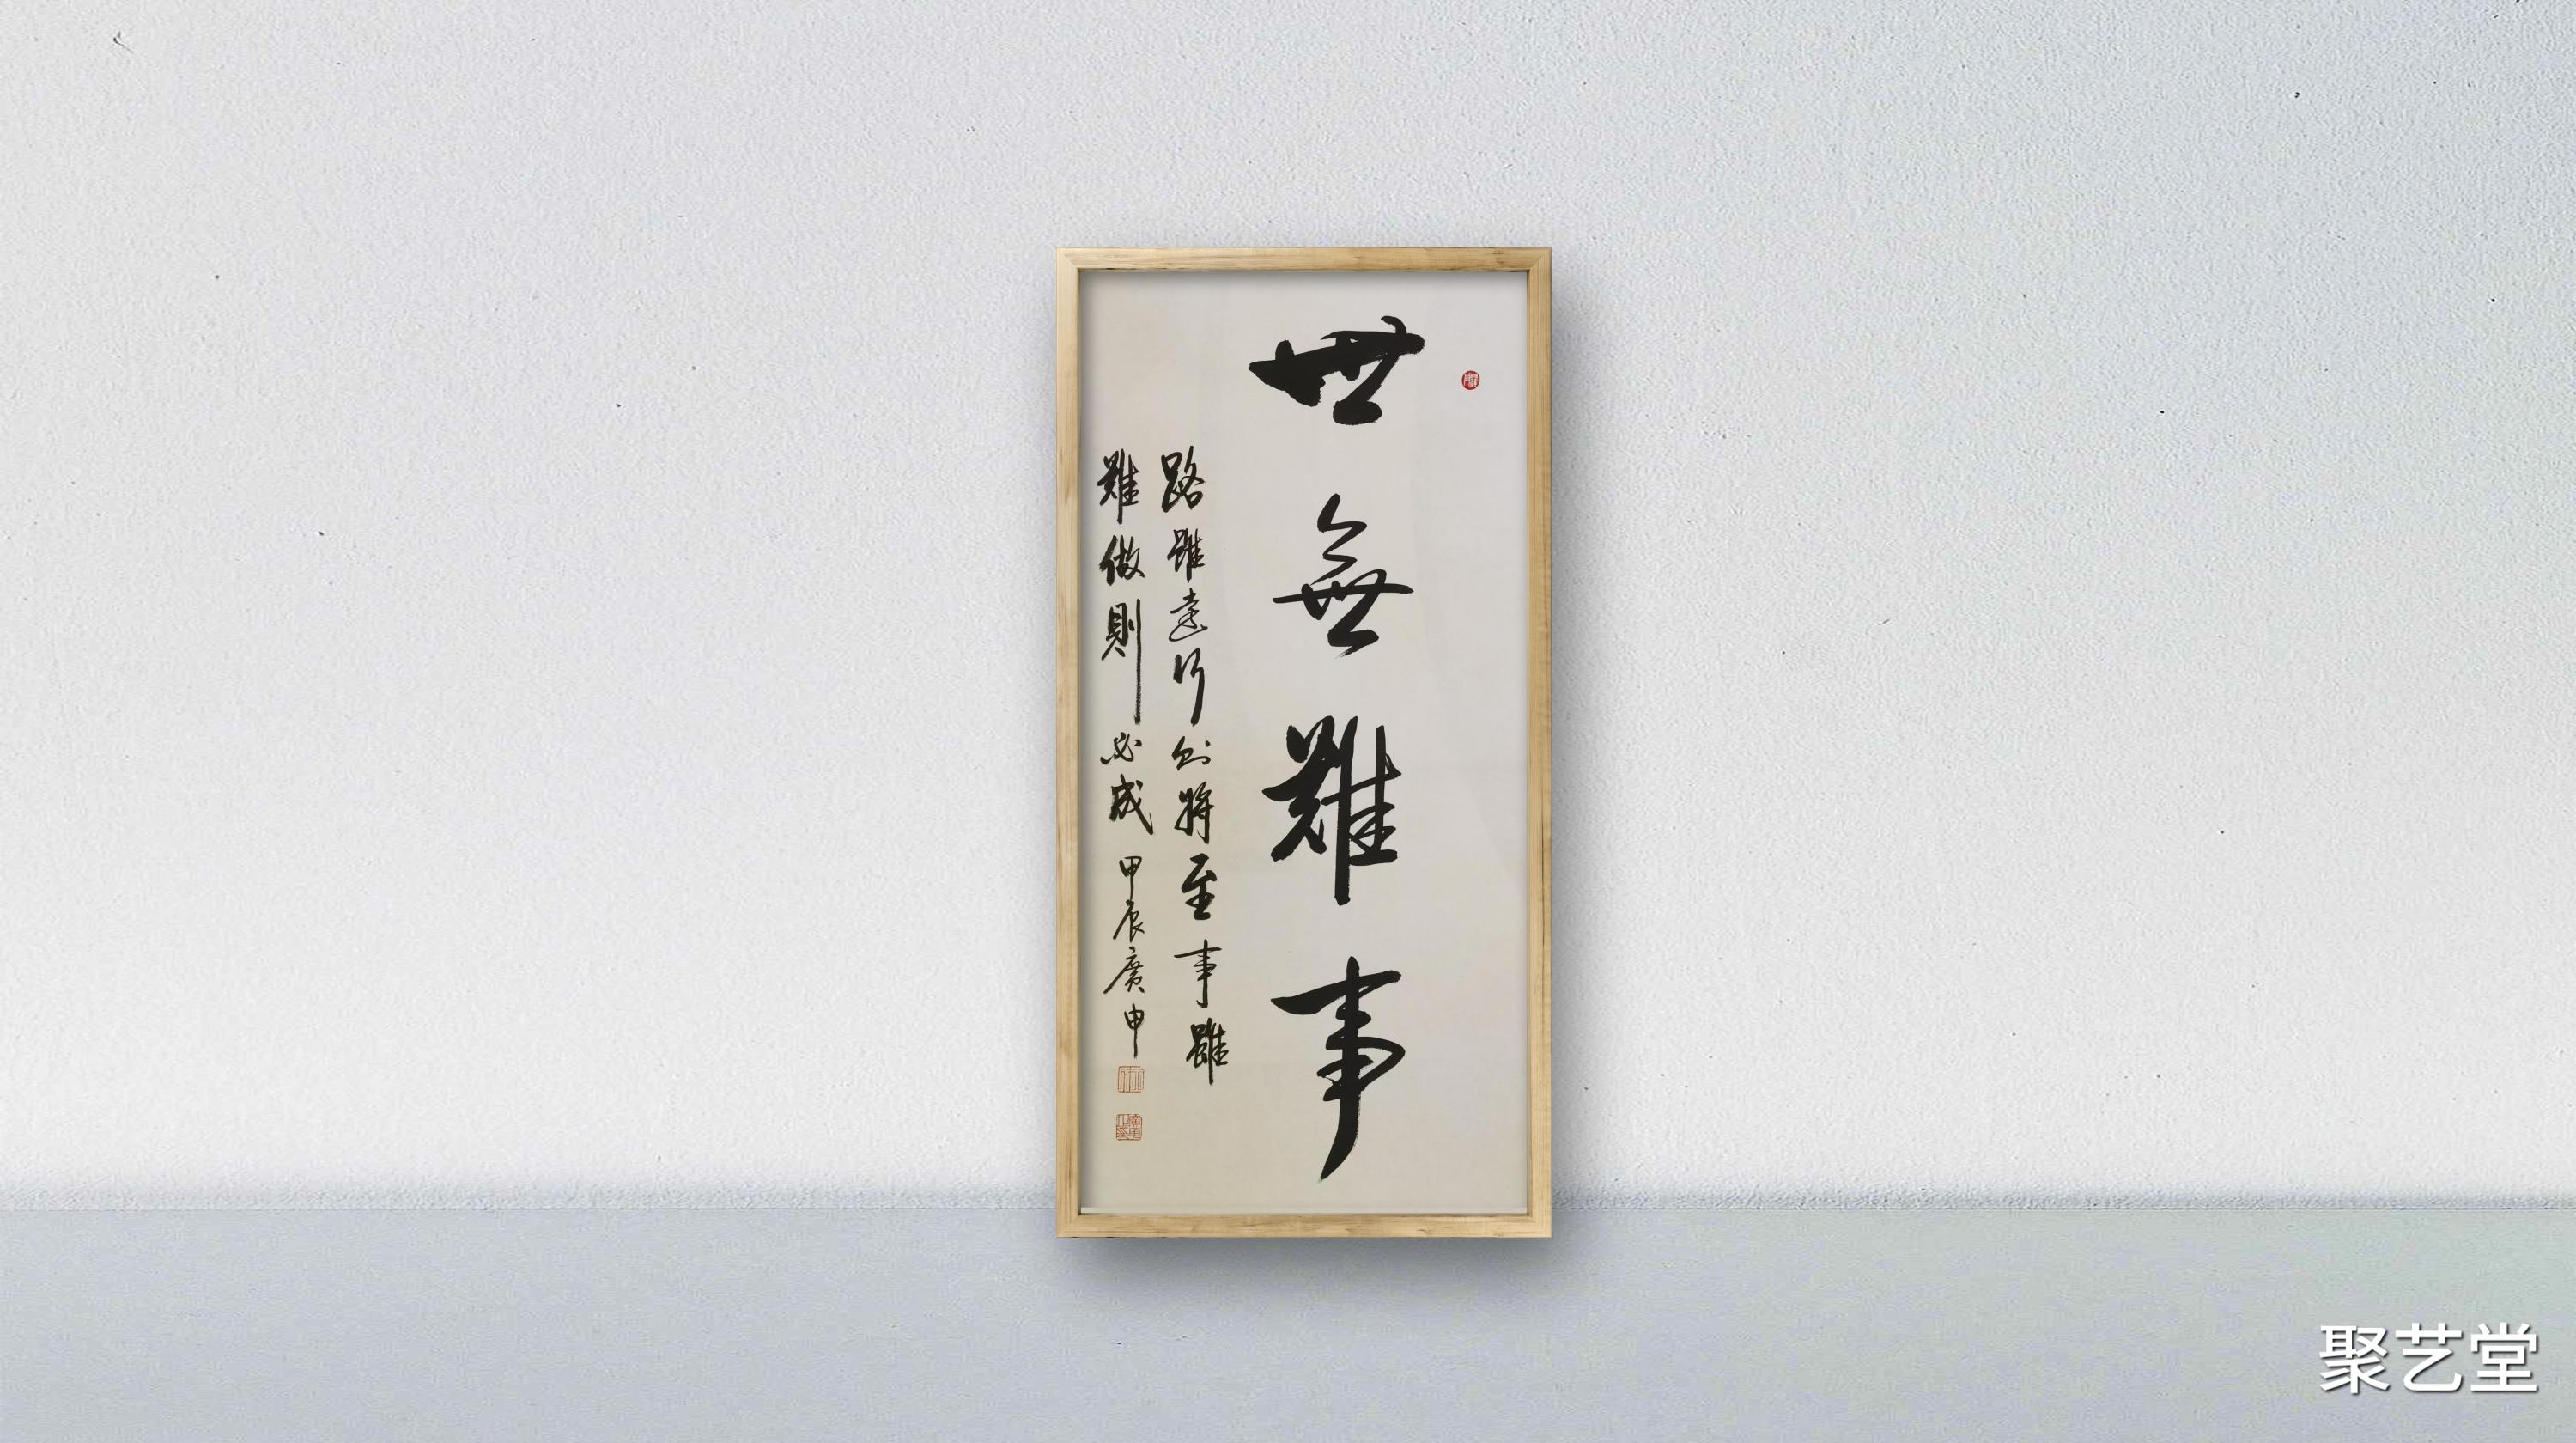 世無難事
路雖遠行則將至事雖
難做則必成甲辰廣申
聚艺堂